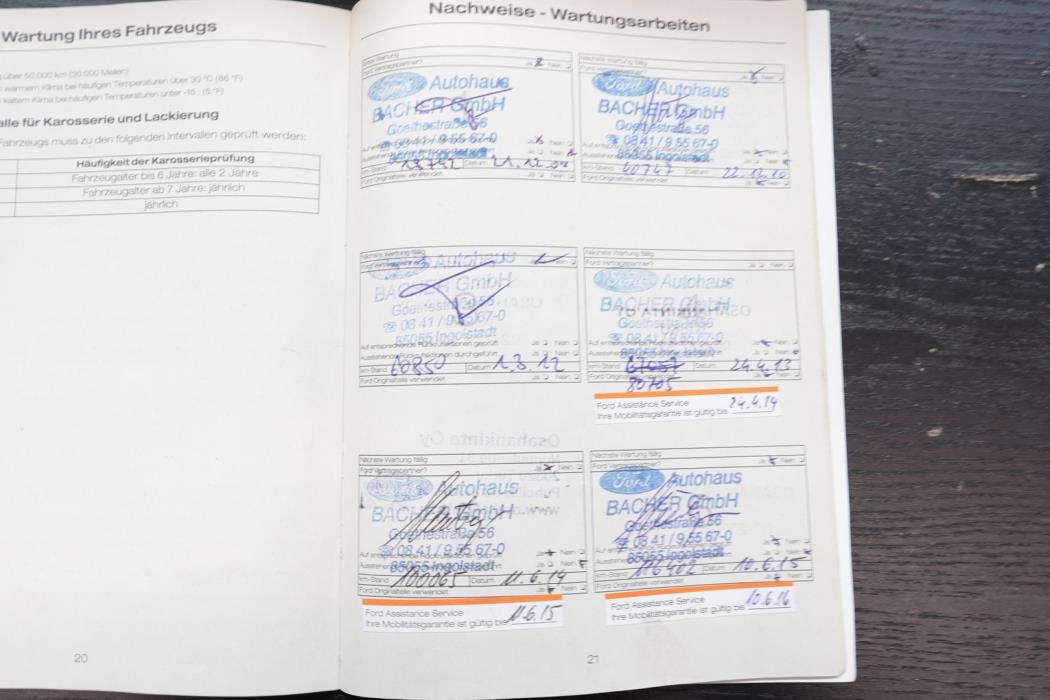 Wartung Ihres Fahrzeugs
über 50.000 km (30.000 Meilen)
warmem Klima bei häufigen Temperaturen über 30 °C (86 °F)
kaltem Klima bei häufigen Temperaturen unter -15 (5 °F)
alle für Karosserie und Lackierung
Fahrzeugs muss zu den folgenden Intervallen geprüft werden:
Häufigkeit der Karosserieprüfung
Fahrzeugalter bis 6 Jahre: alle 2 Jahre
Fahrzeugalter ab 7 Jahre: jährlich
jährlich
20
Nachweise - Wartungsarbeiten
Erste Wartung
Ford Vertragspartner? Ja Nein
Ford Autohaus
BACHER GmbH
Goethestraße 56
08 41 / 9 55 67-0
85055 Ingolstadt
km-Stand Datum 21.12.
Ford Originalteile verwendet
Ford Autohaus
BACHER GmbH
Goethestraße 56
08 41 / 9 55 67-0
85055 Ingolstadt
km-Stand 40747 Datum 22.12.10
Ford Originalteile verwendet
Nächste Wartung fällig
Ford Vertragspartner?
Autohaus
BACHER GmbH
Goethestraße 56
08 41 / 9 55 67-0
85055 Ingolstadt
Auf entsprechende Rückrufaktionen geprüft Ja Nein
Ausstehende Rückrufaktionen durchgeführt Ja Nein
km-Stand 60850 Datum 1.3.12
Ford Originalteile verwendet Ja Nein
Nächste Wartung fällig
Ford Vertragspartner? Ja Nein
Ford Autohaus
BACHER GmbH
Goethestraße 56
08 41 / 9 55 67-0
85055 Ingolstadt
km-Stand Datum 24.4.13
Ford Originalteile verwendet
80705
Ford Assistance Service
Ihre Mobilitätsgarantie ist gültig bis 24.4.14
Nächste Wartung fällig
Ford Vertragspartner? Ja Nein
Autohaus
BACHER GmbH
Goethestraße 56
08 41 / 9 55 67-0
85055 Ingolstadt
km-Stand 100065 Datum 11.6.14
Ford Originalteile verwendet Ja Nein
Ford Assistance Service
Ihre Mobilitätsgarantie ist gültig bis 11.6.15
Nächste Wartung fällig
Ford Vertragspartner? Ja Nein
Ford Autohaus
BACHER GmbH
Goethestraße 56
08 41 / 9 55 67-0
85055 Ingolstadt
km-Stand 116402 Datum 10.6.15
Ford Originalteile verwendet Ja Nein
Ford Assistance Service
Ihre Mobilitätsgarantie ist gültig bis 10.6.16
21